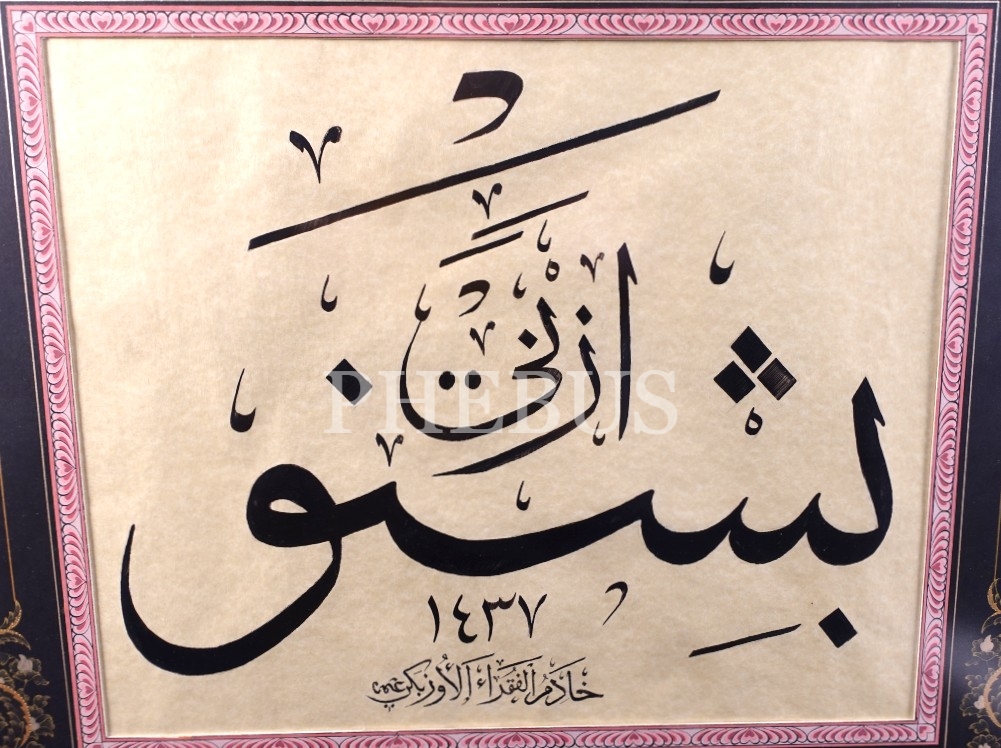 بشنو
از نی
PHEBUS
١٤٣٧
خادم الفقراء الأوزبكي